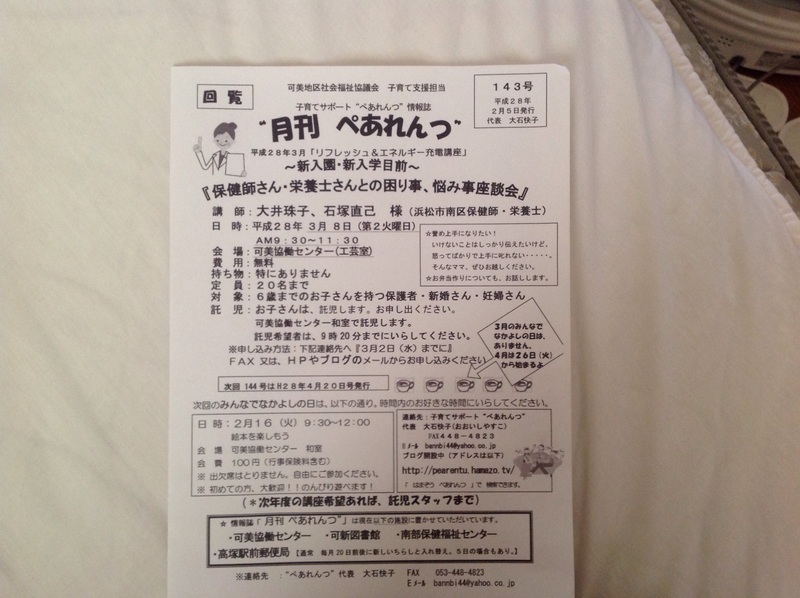 回覧
可美地区社会福祉協議会 子育て支援担当
143号
平成28年
2月5日発行
代表 大石快子
子育てサポート“ぺあれんつ”情報誌
“月刊 ぺあれんつ”
平成28年3月「リフレッシュ&エネルギー充電講座」
～新入園・新入学目前～
『保健師さん・栄養士さんとの困り事、悩み事座談会』
講 師：大井珠子、石塚直己 様（浜松市南区保健師・栄養士）
日 時：平成28年 3月 8日（第2火曜日）
AM9：30～11：30
会 場：可美協働センター(工芸室)
費 用：無料
持ち物：特にありません
定 員：20名まで
☆誉め上手になりたい！
いけないことはしっかり伝えたいけど、
怒ってばかりで上手に叱れない・・・・・。
そんなママ、ぜひお越しください。
☆お弁当作りについても、お話しします。
対 象：6歳までのお子さんを持つ保護者・新婚さん・妊婦さん
託 児：お子さんは、託児します。お申し出ください。
可美協働センター和室で託児します。
託児希望者は、9時20分までにいらしてください。
※申し込み方法：下記連絡先へ『3月2日（水）までに』
FAX 又は、HPやブログのメールからお申し込みください
3月のみんなで
なかよしの日は、
ありません。
4月は26日(火)
から始まるよ
次回 144号はH28年4月20日号発行
次回のみんなでなかよしの日は、以下の通り。時間内のお好きな時間にいらしてください。
日 時：2月16（火）9:30～12:00
絵本を楽しもう
会 場 可美協働センター 和室
会 費 100円（行事保険料含む）
※ 出欠席はとりません。自由にご参加ください。
※ 初めての方、大歓迎！！のんびり遊べます！
連絡先：子育てサポート“ぺあれんつ”
代表 大石快子(おおいしやすこ)
FAX448-4823
Eメール bannbi44@yahoo.co.jp
ブログ開設中（アドレスは以下）
http://pearentu.hamazo.tv/
「 はまぞう ぺあれんつ 」で 検索できます。
（＊次年度の講座希望あれば、託児スタッフまで）
☆ 情報誌「月刊 ぺあれんつ」は現在以下の施設に置かせていただいています。
・可美協働センター ・可新図書館 ・南部保健福祉センター
・高塚駅前郵便局 【通常 毎月20日前後に新しいちらしと入れ替え。5日の場合もあり。】
※連絡先 ：“ぺあれんつ”代表 大石快子 FAX 053-448-4823
Eメール bannbi44@yahoo.co.jp